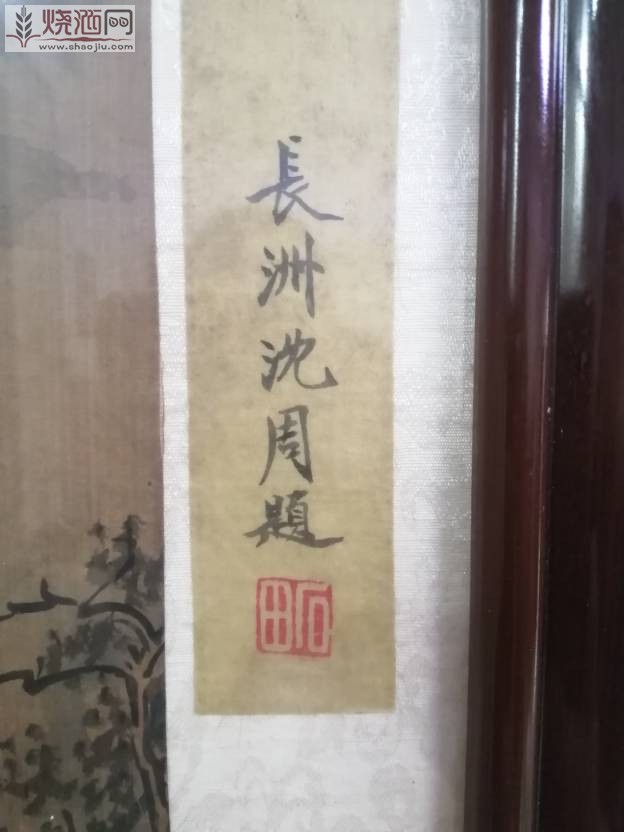 烧酒网
www.shaojiu.com
長洲沈周題
石田